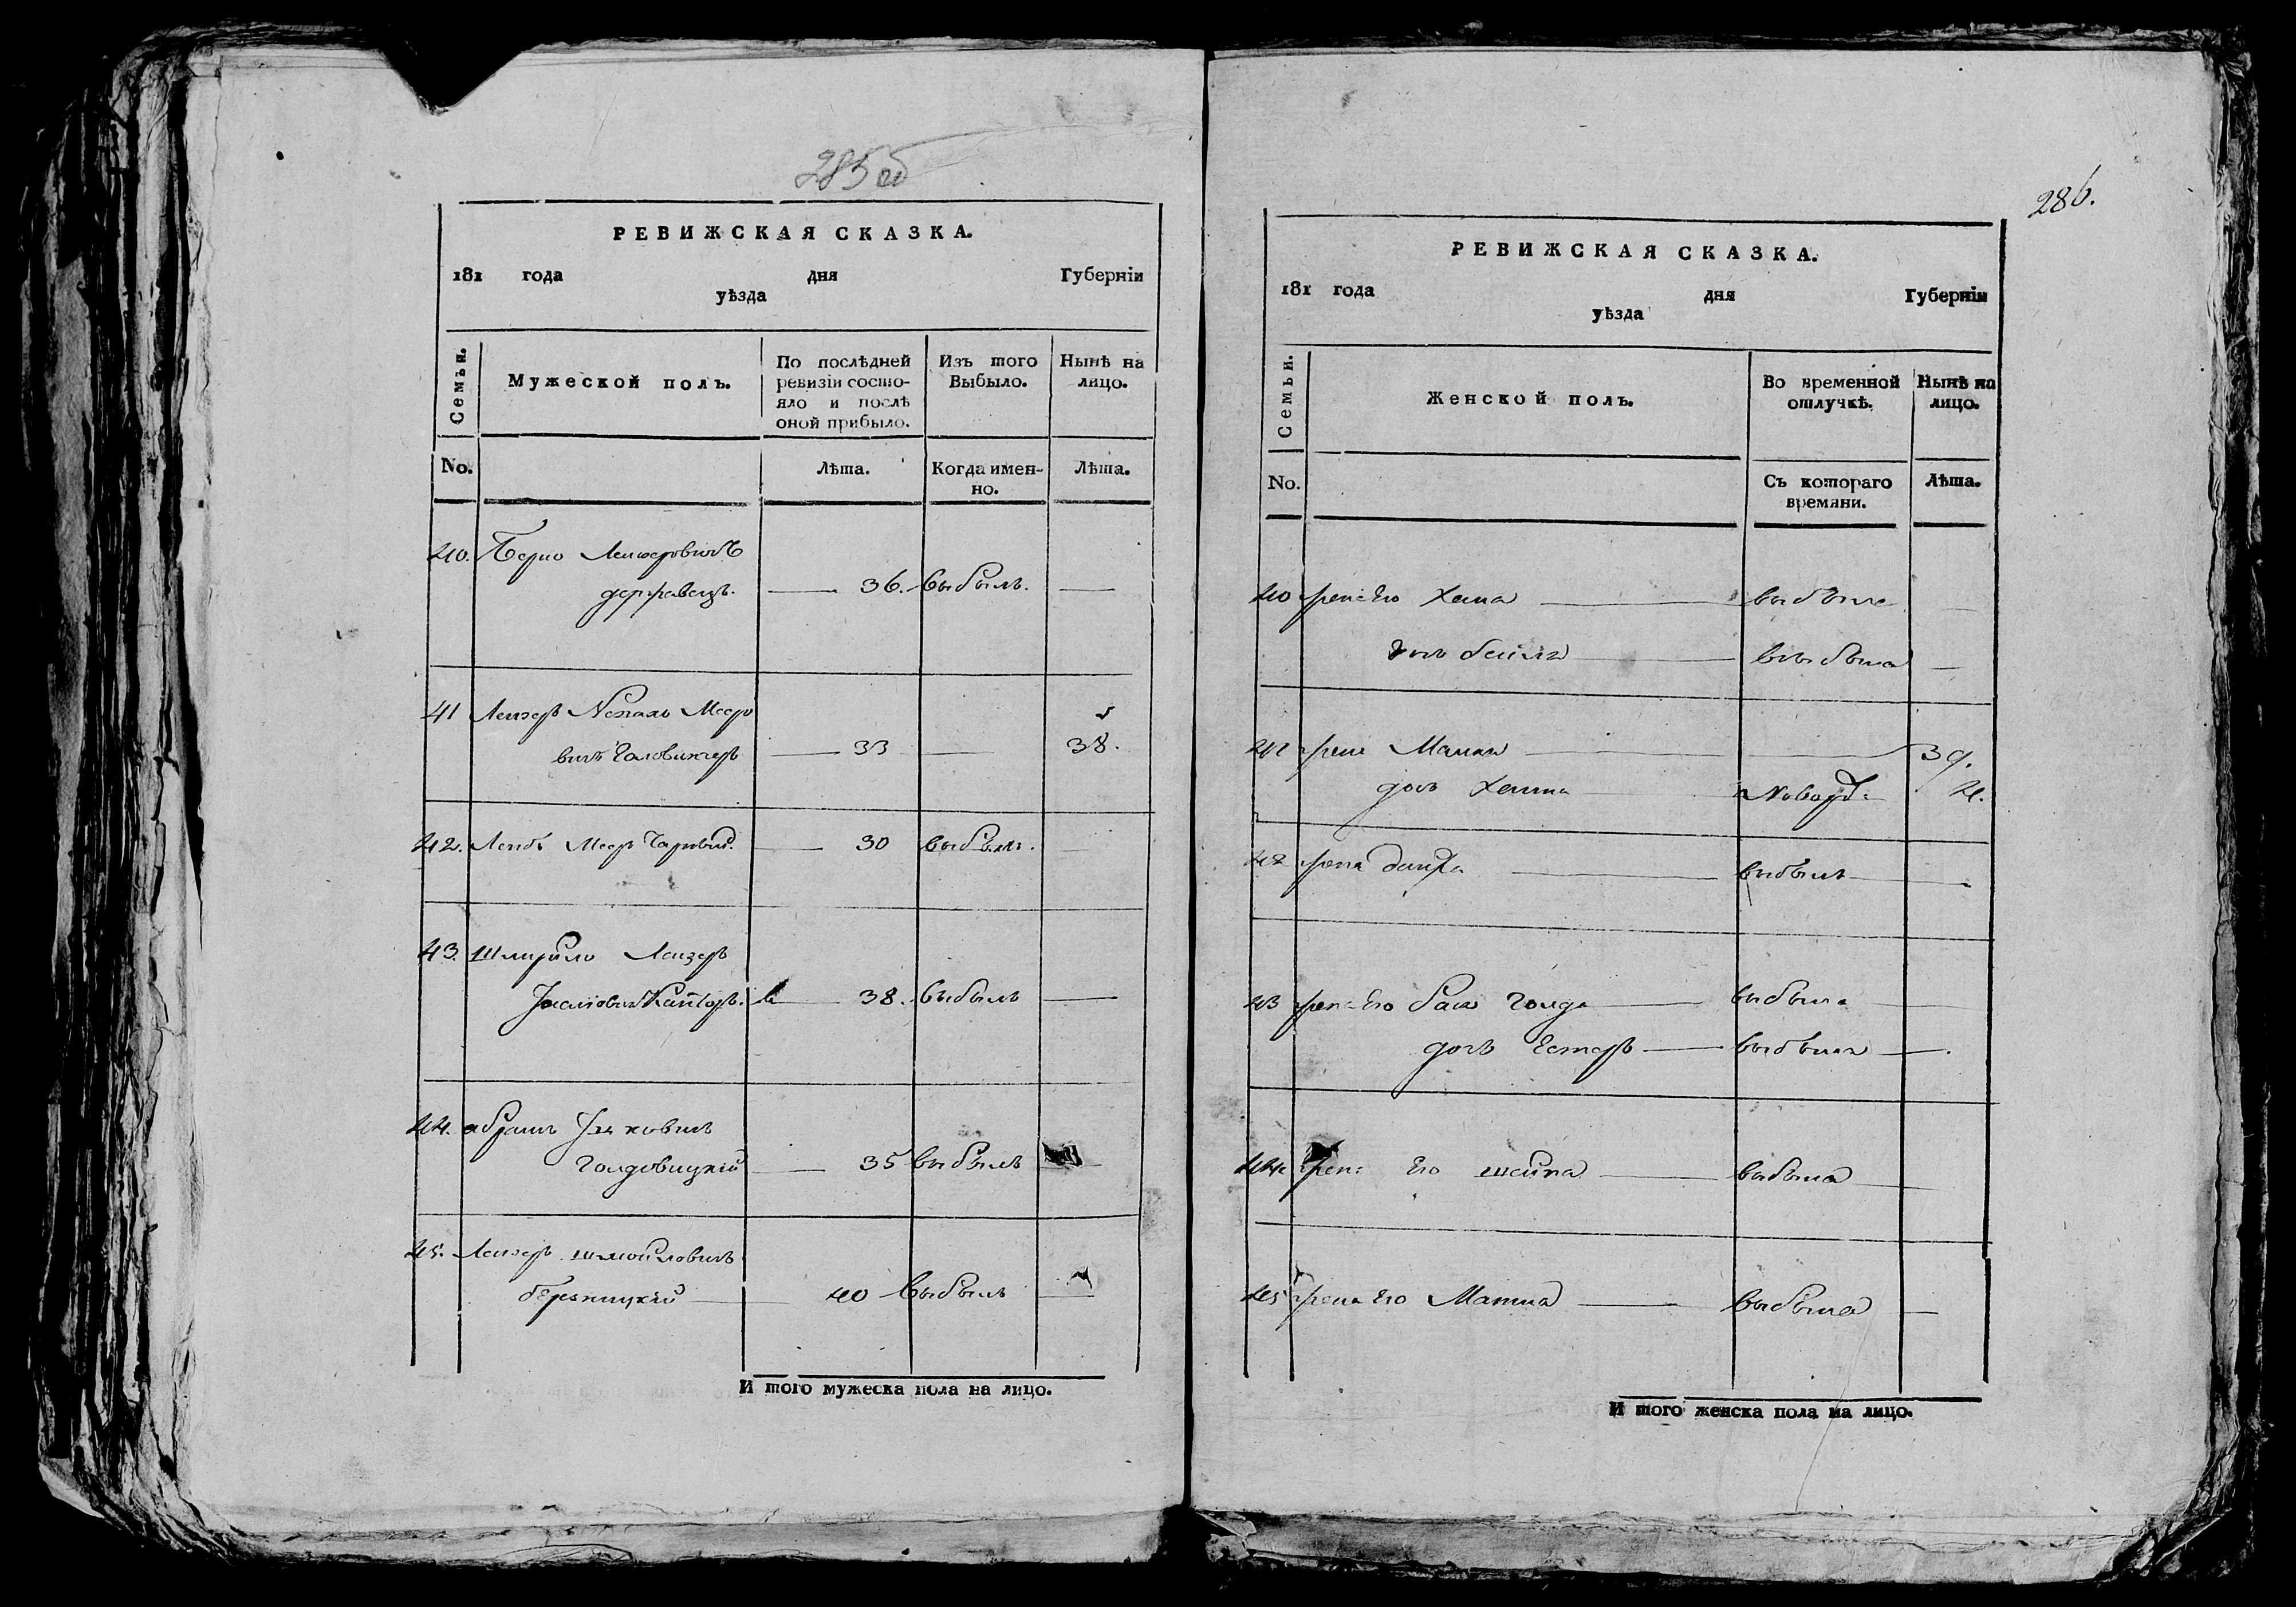 285 об
РЕВИЖСКАЯ СКАЗКА.
181 года дня Губерніи
уѣзда
Семьи.
Мужеской полъ.
По послѣдней ревизіи состояло и послѣ оной прибыло.
Изъ того Выбыло.
Нынѣ на лицо.
No.
Лѣта.
Когда именно.
Лѣта.
40. Берко Лейзеровичъ
36. выбылъ. —
41 Лейзеръ Меер
вичъ — 33 — 38.
42. Лейбъ Меер — 30 выбылъ. —
43. Лейзеръ
Канторъ. — 38. выбылъ —
44. абрамъ
Голдовицкій — 35 выбылъ —
45. Лейзеръ шмойловичъ
берѣницкій 40 выбылъ —
И того мужеска пола на лицо.
286.
РЕВИЖСКАЯ СКАЗКА.
181 года дня Губерніи
уѣзда
Семьи.
Женской полъ.
Во временной отлучкѣ.
Нынѣ на лицо.
No.
Съ котораго времяни.
Лѣта.
40 жена Его Хана — выбыла —
дочь бейла — выбыла —
41 жена — 39.
дочь 4.
42 жена — выбыла —
43 жена Его Голда — выбыла —
дочь Естеръ — выбыла —
44 жена Его шейна — выбыла —
45 жена Его — выбыла —
И того женска пола на лицо.